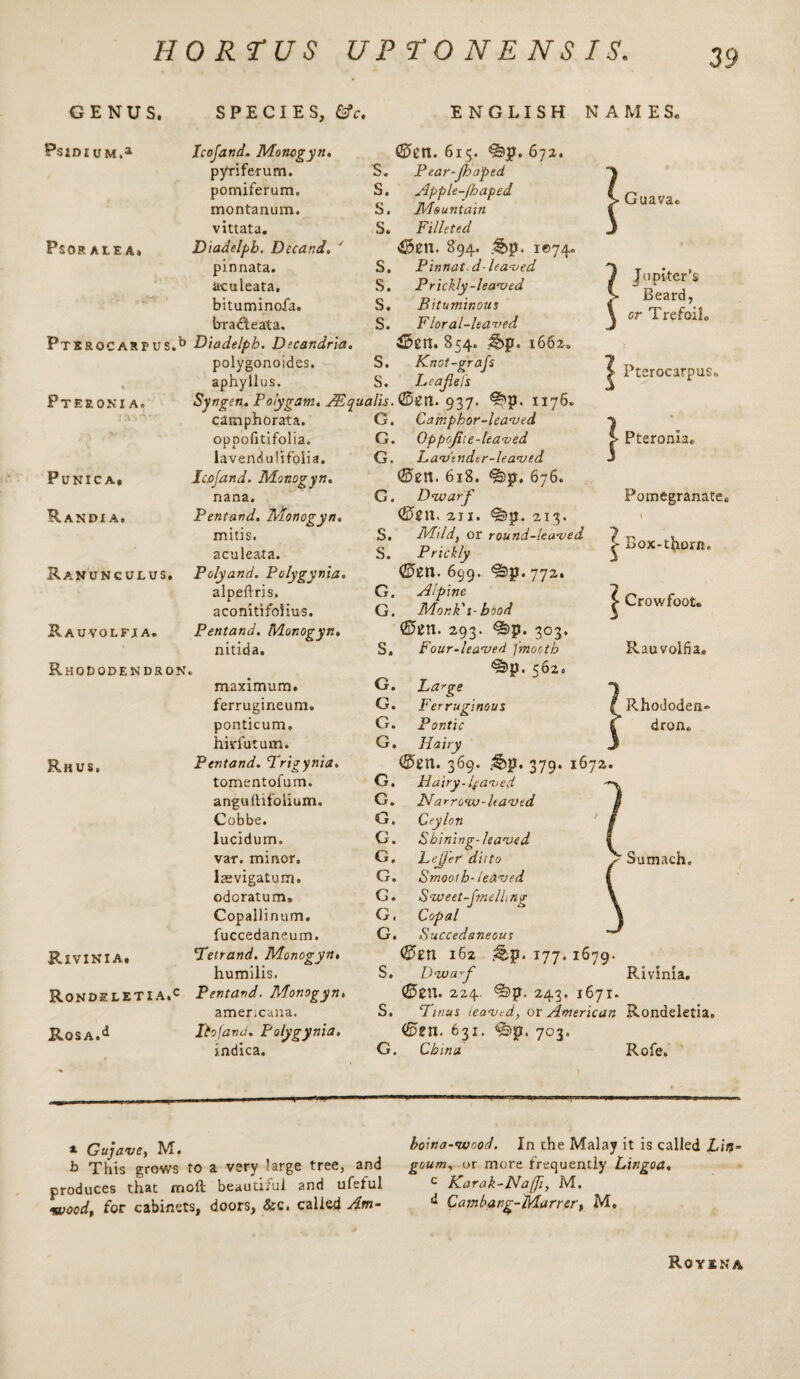 HORTUS UPTONENSIS. 39
GENUS. SPECIES, &c. ENGLISH NAMES.
PSIDIUM.ᵃ Icoſand. Monogyn. Gen. 615. Sp. 672.
pyriferum. S. Pear-ſhaped
pomiferum. S. Apple-ſhaped
montanum. S. Mountain } Guava.
vittata. S. Filleted
PSORALEA. Diadelph. Decand. Gen. 894. Sp. 1074.
pinnata. S. Pinnated-leaved
aculeata. S. Prickly-leaved } Jupiter's Beard, or Trefoil.
bituminoſa. S. Bituminous
bracteata. S. Floral-leaved
PTEROCARPUS.ᵇ Diadelph. Decandria. Gen. 854. Sp. 1662.
polygonoides. S. Knot-graſs } Pterocarpus.
aphyllus. S. Leafleſs
PTERONIA. Syngen. Polygam. Æqualis. Gen. 937. Sp. 1176.
camphorata. G. Camphor-leaved
oppoſitifolia. G. Oppoſite-leaved } Pteronia.
lavendulifolia. G. Lavender-leaved
PUNICA. Icoſand. Monogyn. Gen. 618. Sp. 676.
nana. G. Dwarf Pomegranate.
RANDIA. Pentand. Monogyn. Gen. 211. Sp. 213.
mitis. S. Mild, or round-leaved } Box-thorn.
aculeata. S. Prickly
RANUNCULUS. Polyand. Polygynia. Gen. 699. Sp. 772.
alpeſtris. G. Alpine } Crowfoot.
aconitifolius. G. Monk's-hood
RAUVOLFIA. Pentand. Monogyn. Gen. 293. Sp. 303.
nitida. S. Four-leaved ſmooth Rauvolfia.
RHODODENDRON. Sp. 562.
maximum. G. Large
ferrugineum. G. Ferruginous } Rhododendron.
ponticum. G. Pontic
hirſutum. G. Hairy
RHUS. Pentand. Trigynia. Gen. 369. Sp. 379. 1672.
tomentoſum. G. Hairy-leaved
anguſtifolium. G. Narrow-leaved
Cobbe. G. Ceylon
lucidum. G. Shining-leaved
var. minor. G. Leſſer ditto } Sumach.
lævigatum. G. Smooth-leaved
odoratum. G. Sweet-ſmelling
Copallinum. G. Copal
ſuccedaneum. G. Succedaneous
RIVINIA. Tetrand. Monogyn. Gen 162. Sp. 177. 1679.
humilis. S. Dwarf Rivinia.
RONDELETIA.ᶜ Pentand. Monogyn. Gen. 224. Sp. 243. 1671.
americana. S. Tinus leaved, or American Rondeletia.
ROSA.ᵈ Icoſand. Polygynia. Gen. 631. Sp. 703.
indica. G. China Roſe.
ᵃ Gujave, M.
ᵇ This grows to a very large tree, and
produces that moſt beautiful and uſeful
wood, for cabinets, doors, &c. called Am-
boina-wood. In the Malay it is called Lin-
goum, or more frequently Lingoa.
ᶜ Karak-Naſſi, M.
ᵈ Cambang-Marrer, M.
ROYENA